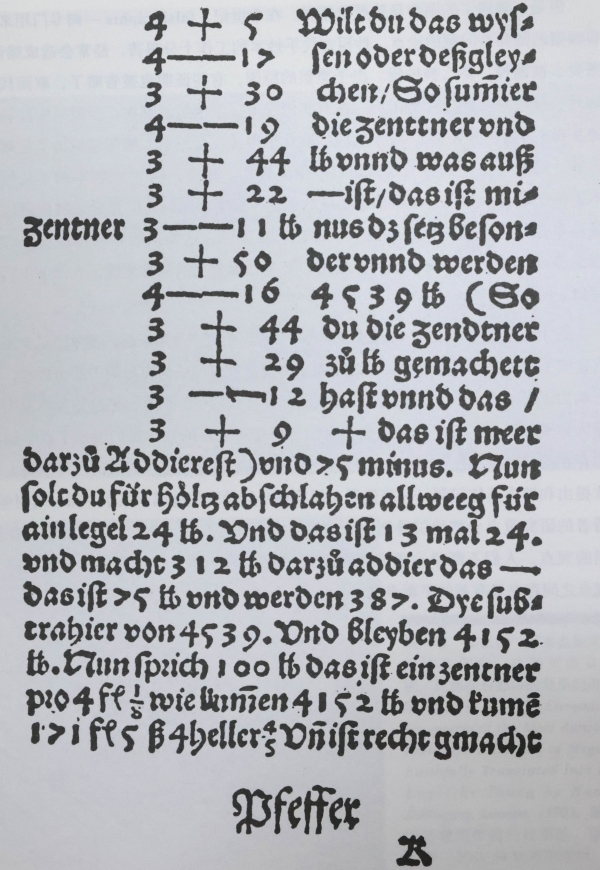 4 + 5 Wilt du das wyſ⸗
4 — 17 ſen oder deßgley⸗
3 + 30 chen/ So ſumier
4 — 19 die zenttner vnd
3 + 44 lb vnnd was auß
3 + 22 — iſt/ das iſt mi⸗
zentner 3 — 11 lb nus dz ſetz beſon⸗
3 + 50 der vnnd werden
4 — 16 4539 lb (So
3 + 44 du die zendtner
3 + 29 zů lb gemachett
3 — 12 haſt vnnd das /
3 + 9 + das iſt meer
darzů Addiereſt) vnd 75 minus. Nun
ſolt du für holtz abſchlahen allweeg für
ain legel 24 lb. Vnd das iſt 13 mal 24.
vnd macht 312 lb darzů addier das
das iſt 75 lb vnd werden 387. Dye ſub⸗
trahier von 4539. Vnd bleyben 4152
lb. Nun ſprich 100 lb das iſt ein zentner
pro 4 fl ⅛ wie kum̄en 4152 lb vnd kumē
171 fl 5 ß 4 heller ⅘ Vn̄ iſt recht gmacht
Pfeffer
R